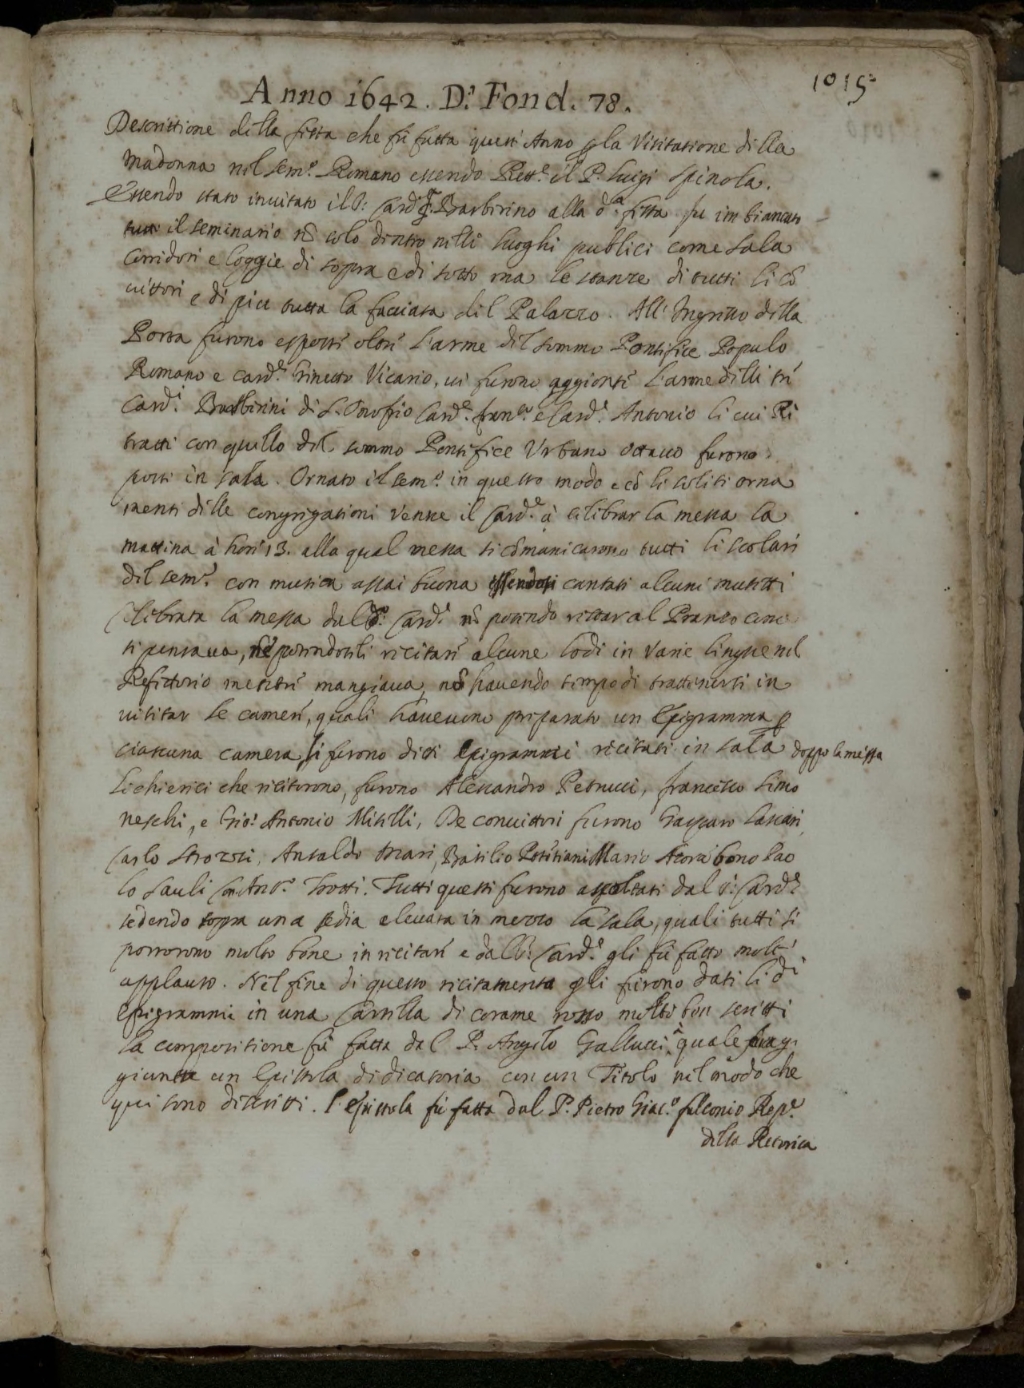 1015
Anno 1642. D.' Fond. 78.
Descrittione della festa che fù fatta quest' Anno p la Visitatione della
Madonna nel Sem.º Romano essendo Rett.e il P. Luigi Spinola.
Essendo stato invitato il S: Card. Barberino alla d.a festa fu imbiancato
tutto il seminario nõ solo dentro nelli luoghi publici come sala
Corridori e loggie di sopra e di sotto ma le stanze di tutti li cõ
vittori e di più tutta la facciata del Palazzo. All' Ingresso della
Porta furono esposti oltre l'arme del sommo Pontifice Populo
Romano e Card.e Ginetto Vicario, vi furono aggionte l'arme delli tre
Card.i Barberini di S. Onofrio Card.e fran.co e Card.e Antonio li cui Ri
tratti con quello del sommo Pontifice Urbano ottavo furono
posti in sala. Ornato il sem.º in questo modo e cõ li soliti orna
menti delle congregationi venne il Card.e à celibrar la messa la
mattina à hore 13. alla qual messa si cõmunicarono tutti li scolari
del sem.º con musica assai buona essendosi cantati alcuni mutetti
Celibrata la messa dal d.º Card.e nõ potendo restar al Pranzo come
si pensava, nè potendoseli recitare alcune lodi in varie lingue nel
Refettorio mentre mangiava, nõ havendo tempo di trattenersi in
visitar le camere, quali havevono preparato un Epigramma p
ciascuna camera, li furono detti Epigrammi recitati in sala doppo la messa
Li chierici che recitorono, furono Alessandro Petrucci, francesco Simo
neschi, e Gio: Antonio Miselli, De convittori furono Gasparo Lascari,
Carlo Strozzi, Ansaldo Mari, Basilio Mario Acorambono Pao
lo Sauli Trotti. Tutti questi furono ascoltati dal S: Card.e
sedendo sopra una sedia elevata in mezzo la sala, quali tutti si
portorono molto bene in recitare e dal S: Card.e gli fù fatto molto
applauso. Nel fine di questo recitamento gli furono dati li d.i
Epigrammi in una cartella di corame rosso molto ben scritti
la compositione fù fatta dal P. Angelo Gallucci, quale fu ag
giunta un Epistola didicatoria con un Titolo nel modo che
qui sono descritti. l'epistola fù fatta dal P. Pietro Giac.º
della Retorica